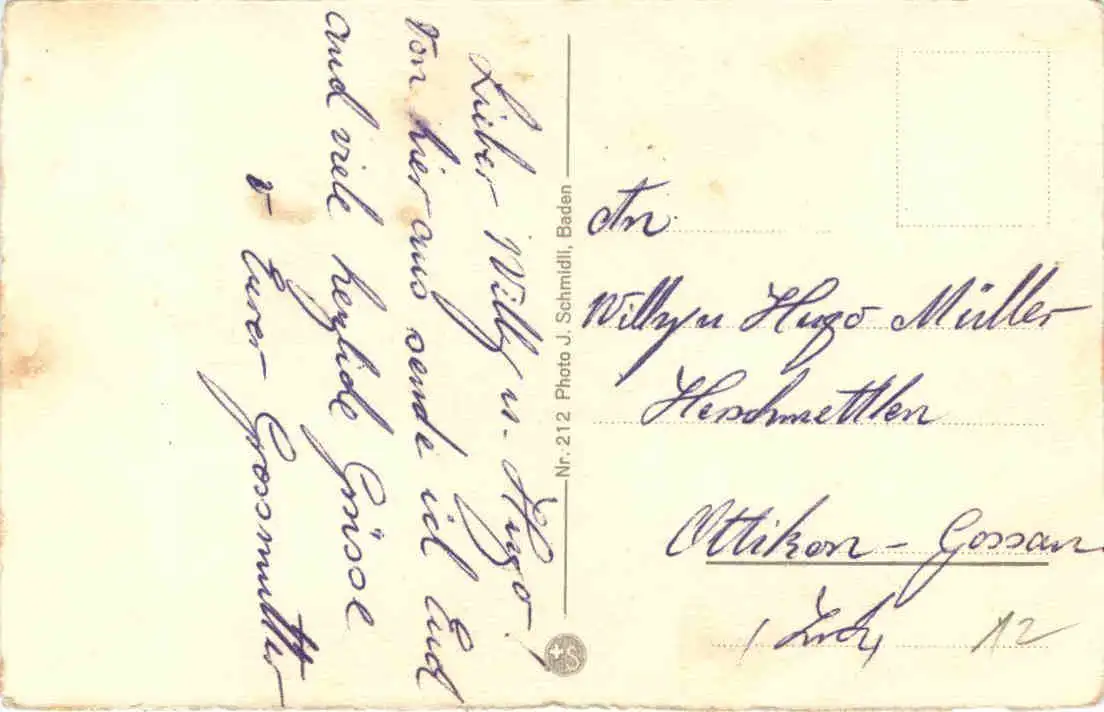 Lieber Willy u. Hugo!
Von hier aus sende ich Euch
und viele herzliche Grüsse
v Euer Grossmutter
Nr. 212 Photo J. Schmidli, Baden
An
Willy u Hugo Müller
Herschmettlen
Ottikon - Gossau
Zrch
12